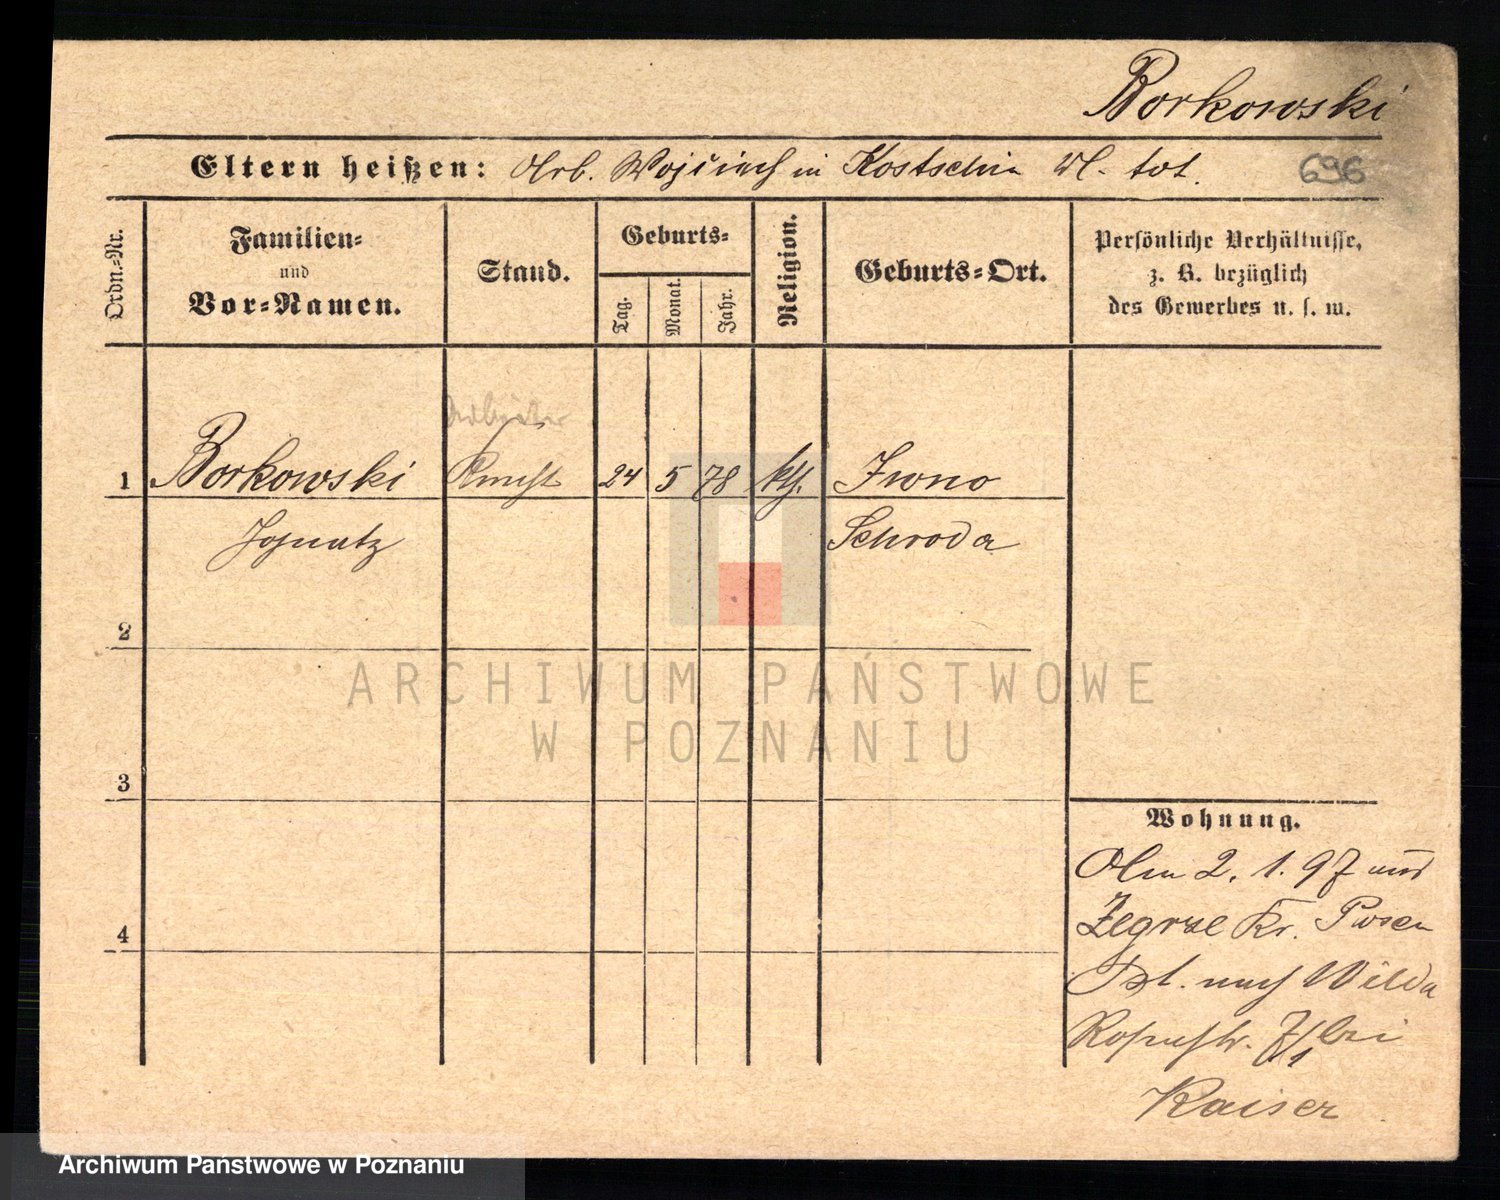 Borkowski
Eltern heißen: Arb. Wojciech in Kostschin Vl. tot.
696
Ordn.-Nr.
Familien-
und
Vor-Namen.
Stand.
Geburts-
Tag.
Monat.
Jahr.
Religion.
Geburts-Ort.
Persönliche Verhältnisse,
z. B. bezüglich
des Gewerbes u. s. w.
Arbeiter
1 Borkowski Knecht 24 5 78 kth. Iwno
Ignatz Schroda
2
3
4
Wohnung.
Am 2. 1. 97 aus
Zegrze Kr. Posen
nach Wilda
bei
Kaiser
ARCHIWUM PAŃSTWOWE
W POZNANIU
Archiwum Państwowe w Poznaniu